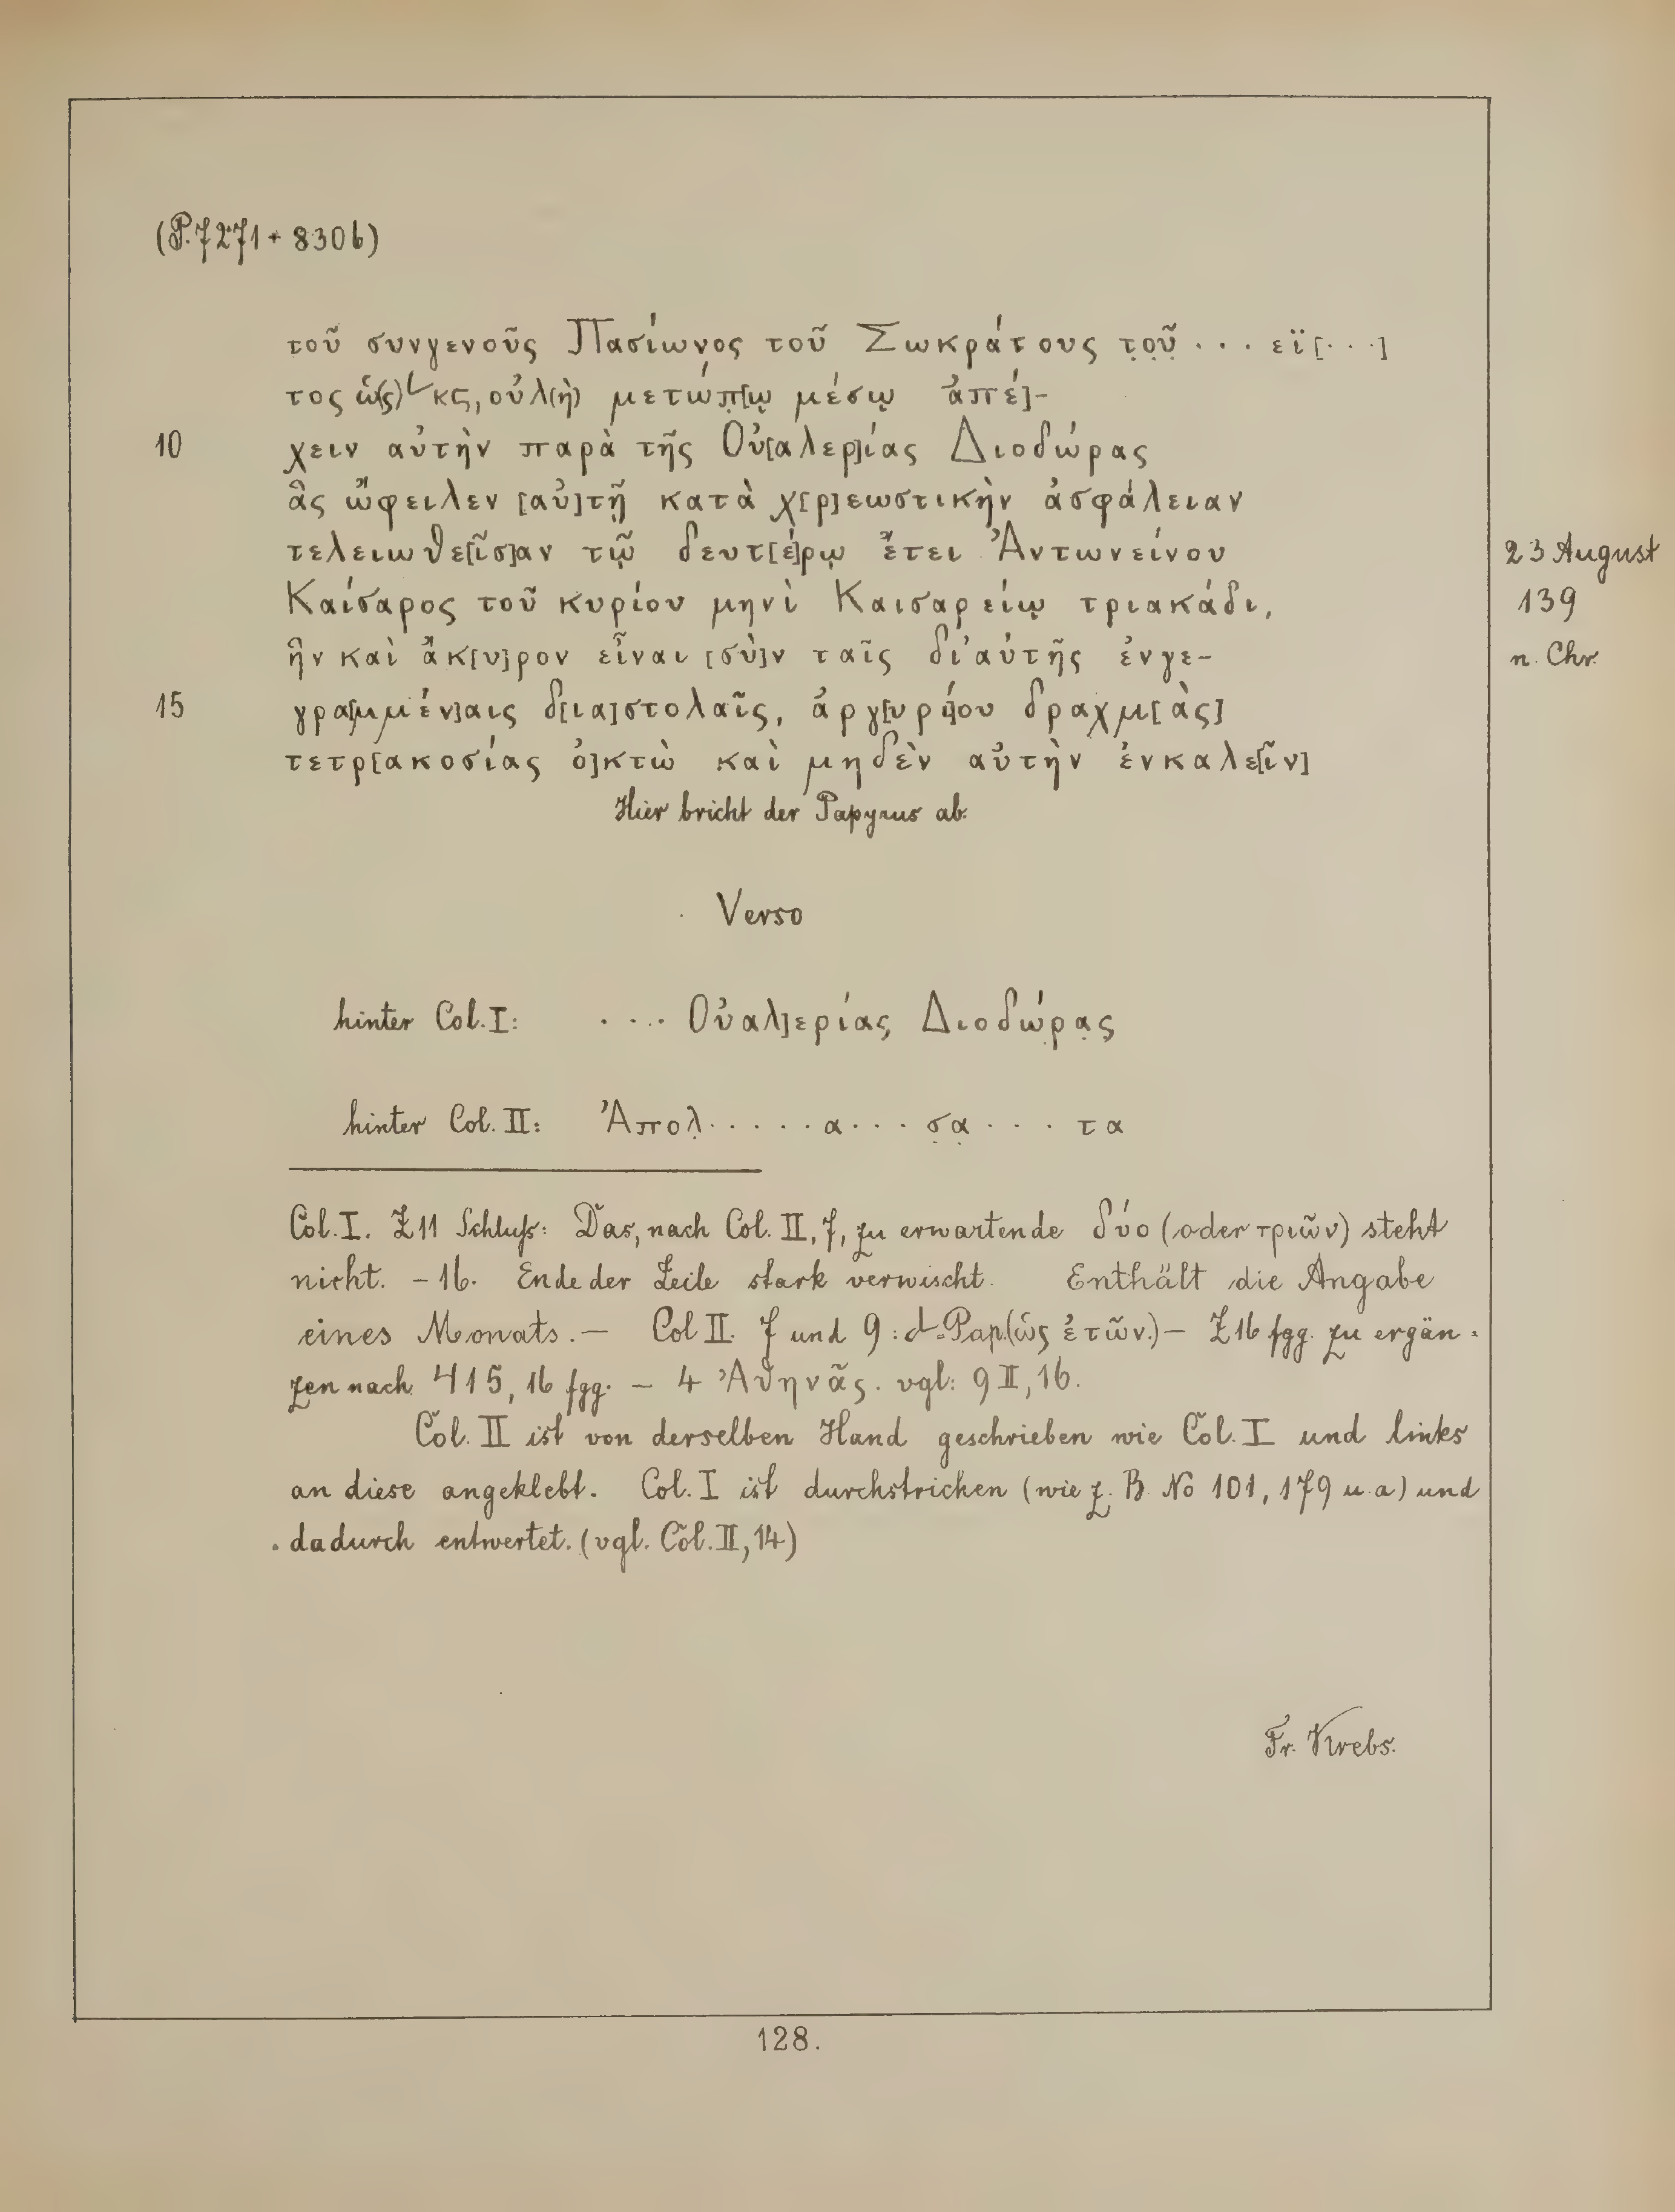 (P. 7271 + 8306)
τοῦ συνγενοῦς Πασίωνος τοῦ Σωκράτους τ̣ο̣ῦ̣ . . . εϊ[. . .]
τος ὡ(ς) L κϛ, οὐλ(ὴ) μετώπ̣[ῳ μέσῳ ἀπέ]-
10 χειν αὐτὴν παρὰ τῆς Οὐ[αλερ]ίας Διοδώρας
ἃς ὤφειλεν [αὐ]τῇ κατὰ χ[ρ]εωστικὴν ἀσφάλειαν
τελειωθε[ῖσ]αν τῷ δευτ[έ]ρῳ ἔτει Ἀντωνείνου 23 August
Καίσαρος τοῦ κυρίου μηνὶ Καισαρείῳ τριακάδι, 139
ἣν καὶ ἄκ[υ]ρον εἶναι [σὺ]ν ταῖς δι' αὐτῆς ἐνγε- n. Chr.
15 γρα[μμέν]αις δ[ια]στολαῖς, ἀργ[υρί]ου δραχμ[ὰς]
τετρ[ακοσίας ὀ]κτὼ καὶ μηδὲν αὐτὴν ἐνκαλε[ῖν]
Hier bricht der Papyrus ab.
Verso
hinter Col. I: . . . . Οὐαλ]ερίας Διοδώρ̣α̣ς̣
hinter Col. II: Ἀπολ̣ . . . . . α . . . σ̣α̣ . . . τα
Col. I. Z 11 Schluß: Das, nach Col. II, 7, zu erwartende δύο (oder τριῶν) steht
nicht. – 16. Ende der Zeile stark verwischt. Enthält die Angabe
eines Monats. — Col II. 7 und 9: L Pap. (ὡς ἐτῶν.) — Z 16 fgg. zu ergän-
zen nach 415, 16 fgg. — 4 Ἀθηνᾶς. vgl: 9 II, 16.
Col. II ist von derselben Hand geschrieben wie Col. I und links
an diese angeklebt. Col. I ist durchstrichen (wie z. B. No 101, 179 u. a) und
dadurch entwertet. (vgl. Col. II, 14)
Fr. Krebs.
128.